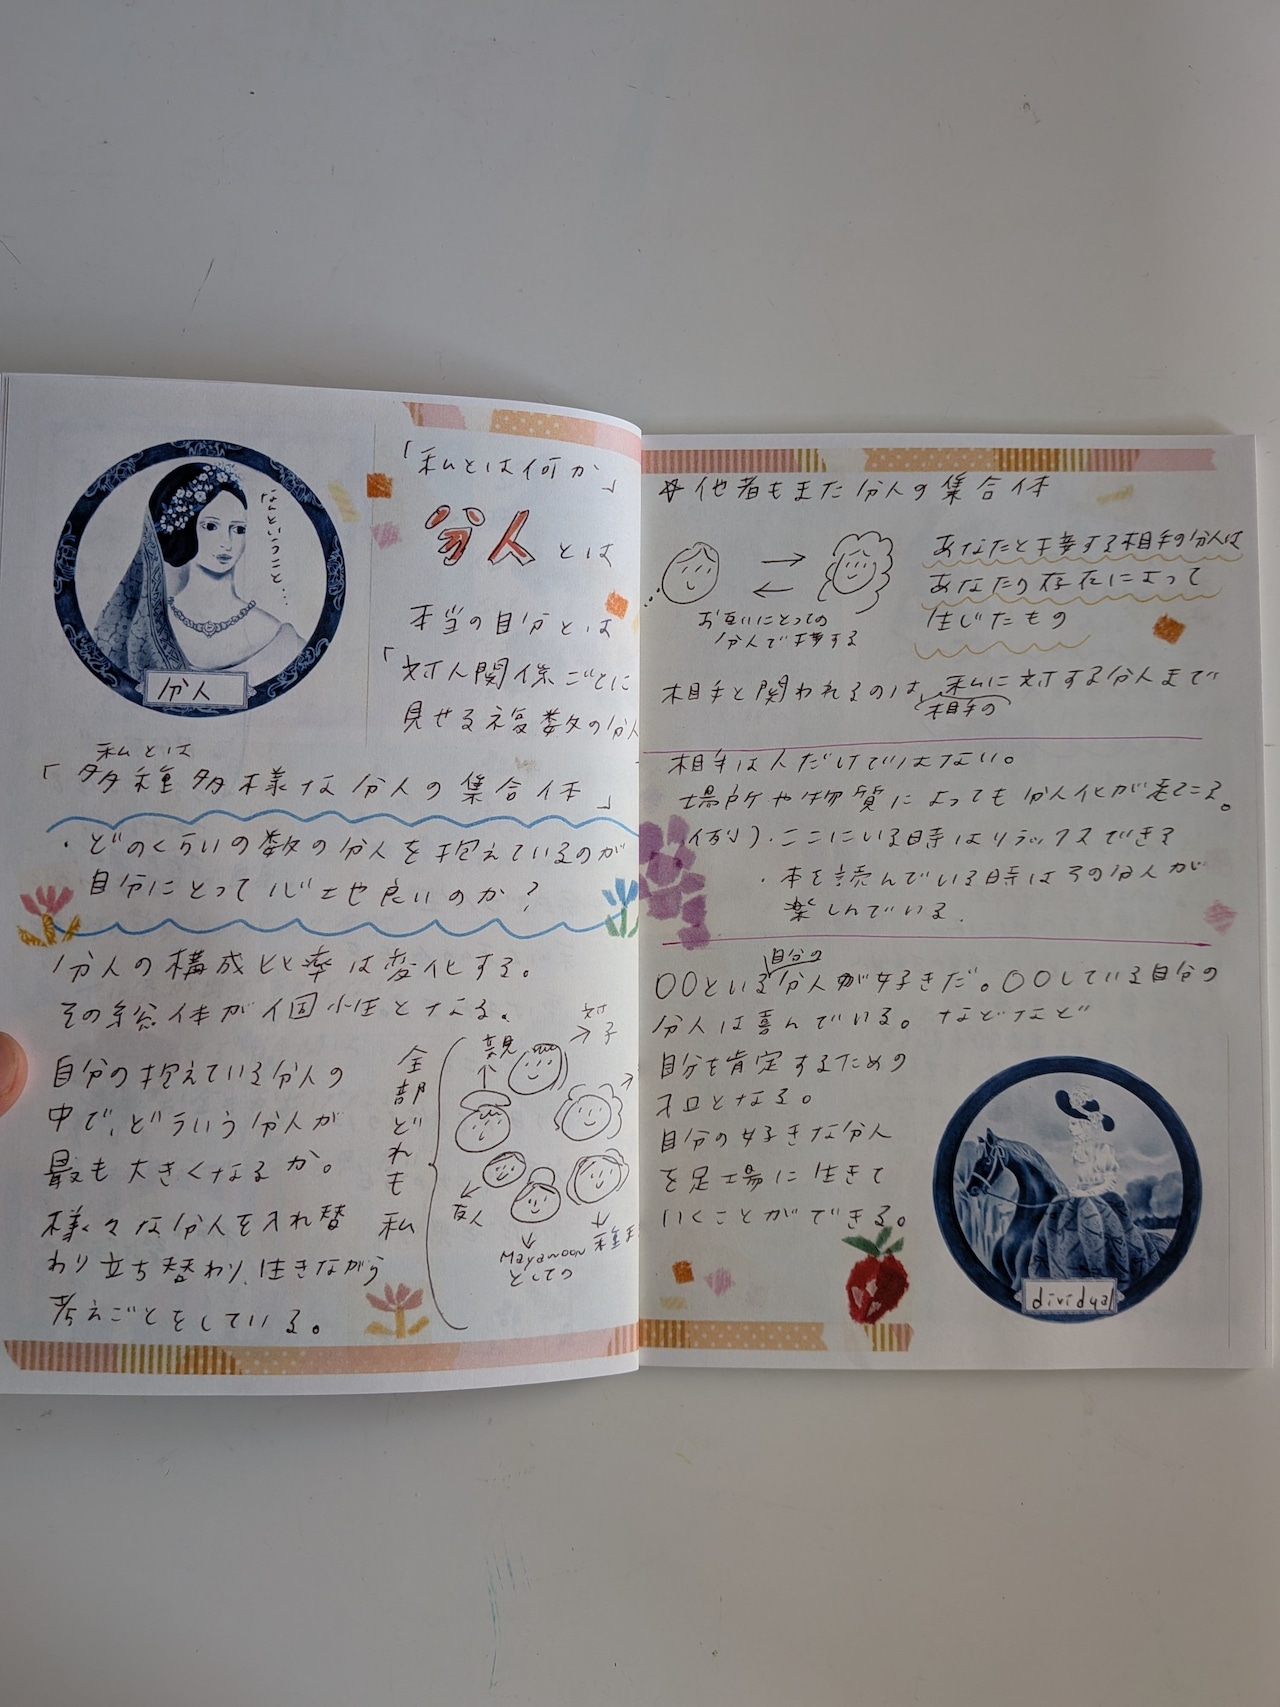 「私とは何か」
分人とは
なんということ…
分人
本当の自分とは
「対人関係ごとに
見せる複数の分人
私とは
「多種多様な分人の集合体」
・どのくらいの数の分人を抱えているのが
自分にとって心地良いのか?
分人の構成比率は変化する。
その総体が個性となる。
自分の抱えている分人の
中で、どういう分人が
最も大きくなるか。
様々な分人を入れ替
わり立ち替わり、生きながら
考えごとをしている。
全部どれも私
親
対子
友人
Mayanoon
としての
☆他者もまた分人の集合体
お互いにとっての
分人で接する
あなたと接する相手の分人は
あなたの存在によって
生じたもの
相手と関われるのは、私に対する分人まで
相手の
相手は人だけではない。
場所や物質によっても分人化が起こる。
例)・ここにいる時はリラックスできる
・本を読んでいる時はその分人が
楽しんでいる.
自分の
〇〇といる分人が好きだ。〇〇している自分の
分人は喜んでいる。などなど
自分を肯定するための
入口となる。
自分の好きな分人
を足場に生きて
いくことができる。
dividual